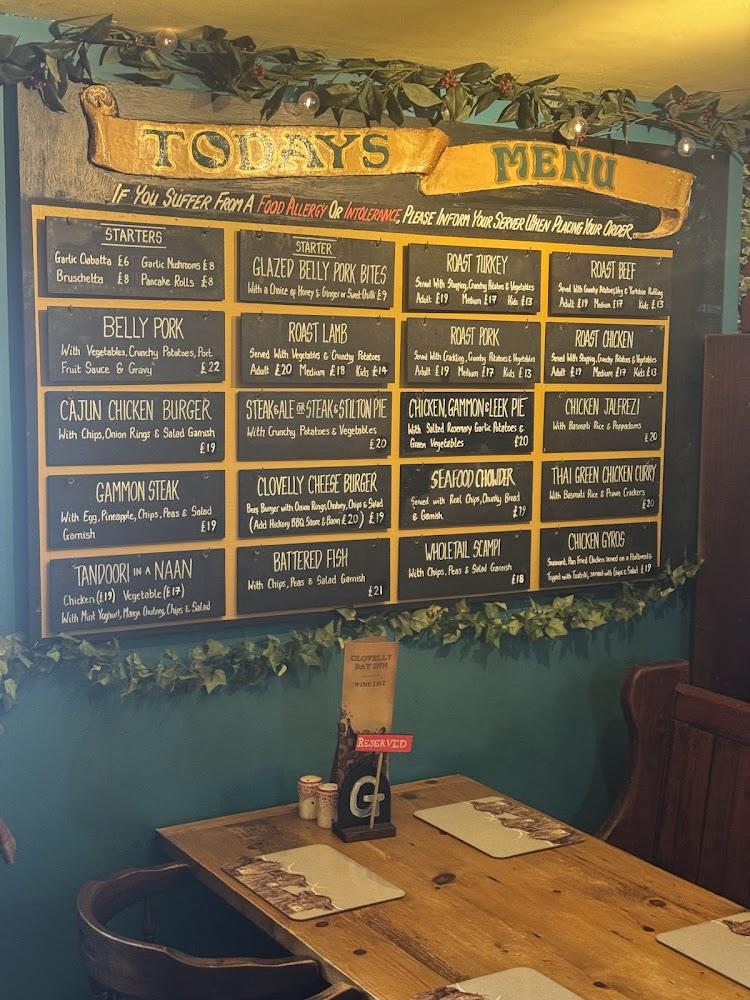 TODAYS MENU
IF YOU SUFFER FROM A FOOD ALLERGY OR INTOLERANCE, PLEASE INFORM YOUR SERVER WHEN PLACING YOUR ORDER.
STARTERS
Garlic Ciabatta £6 Garlic Mushrooms £8
Bruschetta £8 Pancake Rolls £8
STARTER
GLAZED BELLY PORK BITES
With a Choice of Honey & Ginger or Sweet Chilli £9
ROAST TURKEY
Served With Stuffing, Crunchy Potatoes & Vegetables
Adult £19 Medium £17 Kids £13
ROAST BEEF
Served With Crunchy Potatoes, Veg & Yorkshire Pudding
Adult £19 Medium £17 Kids £13
BELLY PORK
With Vegetables, Crunchy Potatoes, Port
Fruit Sauce & Gravy £22
ROAST LAMB
Served With Vegetables & Crunchy Potatoes
Adult £20 Medium £18 Kids £14
ROAST PORK
Served With Crackling, Crunchy Potatoes & Vegetables
Adult £19 Medium £17 Kids £13
ROAST CHICKEN
Served With Stuffing, Crunchy Potatoes & Vegetables
Adult £19 Medium £17 Kids £13
CAJUN CHICKEN BURGER
With Chips, Onion Rings & Salad Garnish
£19
STEAK & ALE OR STEAK & STILTON PIE
With Crunchy Potatoes & Vegetables
£20
CHICKEN, GAMMON & LEEK PIE
With Salted Rosemary Garlic Potatoes &
Green Vegetables £20
CHICKEN JALFREZI
With Basmati Rice & Poppadoms
£20
GAMMON STEAK
With Egg, Pineapple, Chips, Peas & Salad
Garnish £19
CLOVELLY CHEESE BURGER
Beef Burger with Onion Rings, Chutney, Chips & Salad
(Add Hickory BBQ Sauce & Bacon £20) £19
SEAFOOD CHOWDER
Served with Real Chips, Chunky Bread
& Garnish £19
THAI GREEN CHICKEN CURRY
With Basmati Rice & Prawn Crackers
£20
TANDOORI IN A NAAN
Chicken (£19) Vegetable (£17)
With Mint Yoghurt, Mango Chutney, Chips & Salad
BATTERED FISH
With Chips, Peas & Salad Garnish
£21
WHOLETAIL SCAMPI
With Chips, Peas & Salad Garnish
£18
CHICKEN GYROS
Seasoned, Pan Fried Chicken served on a Flatbread &
Topped with Tzatziki, served with Chips & Salad £19
CLOVELLY
BAY INN
WINE LIST
RESERVED
G